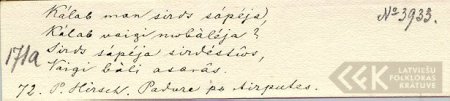 Kālab man sirds sāpēja, №3933.
Kālab vaigi nobālēja?
171a
Sirds sāpēja sirdēstūos,
Vaigi bāli asarās.
72. P. Hirsch. Padurē pa Aizputes.
LATVIEŠU
FOLKLORAS
KRĀTUVE